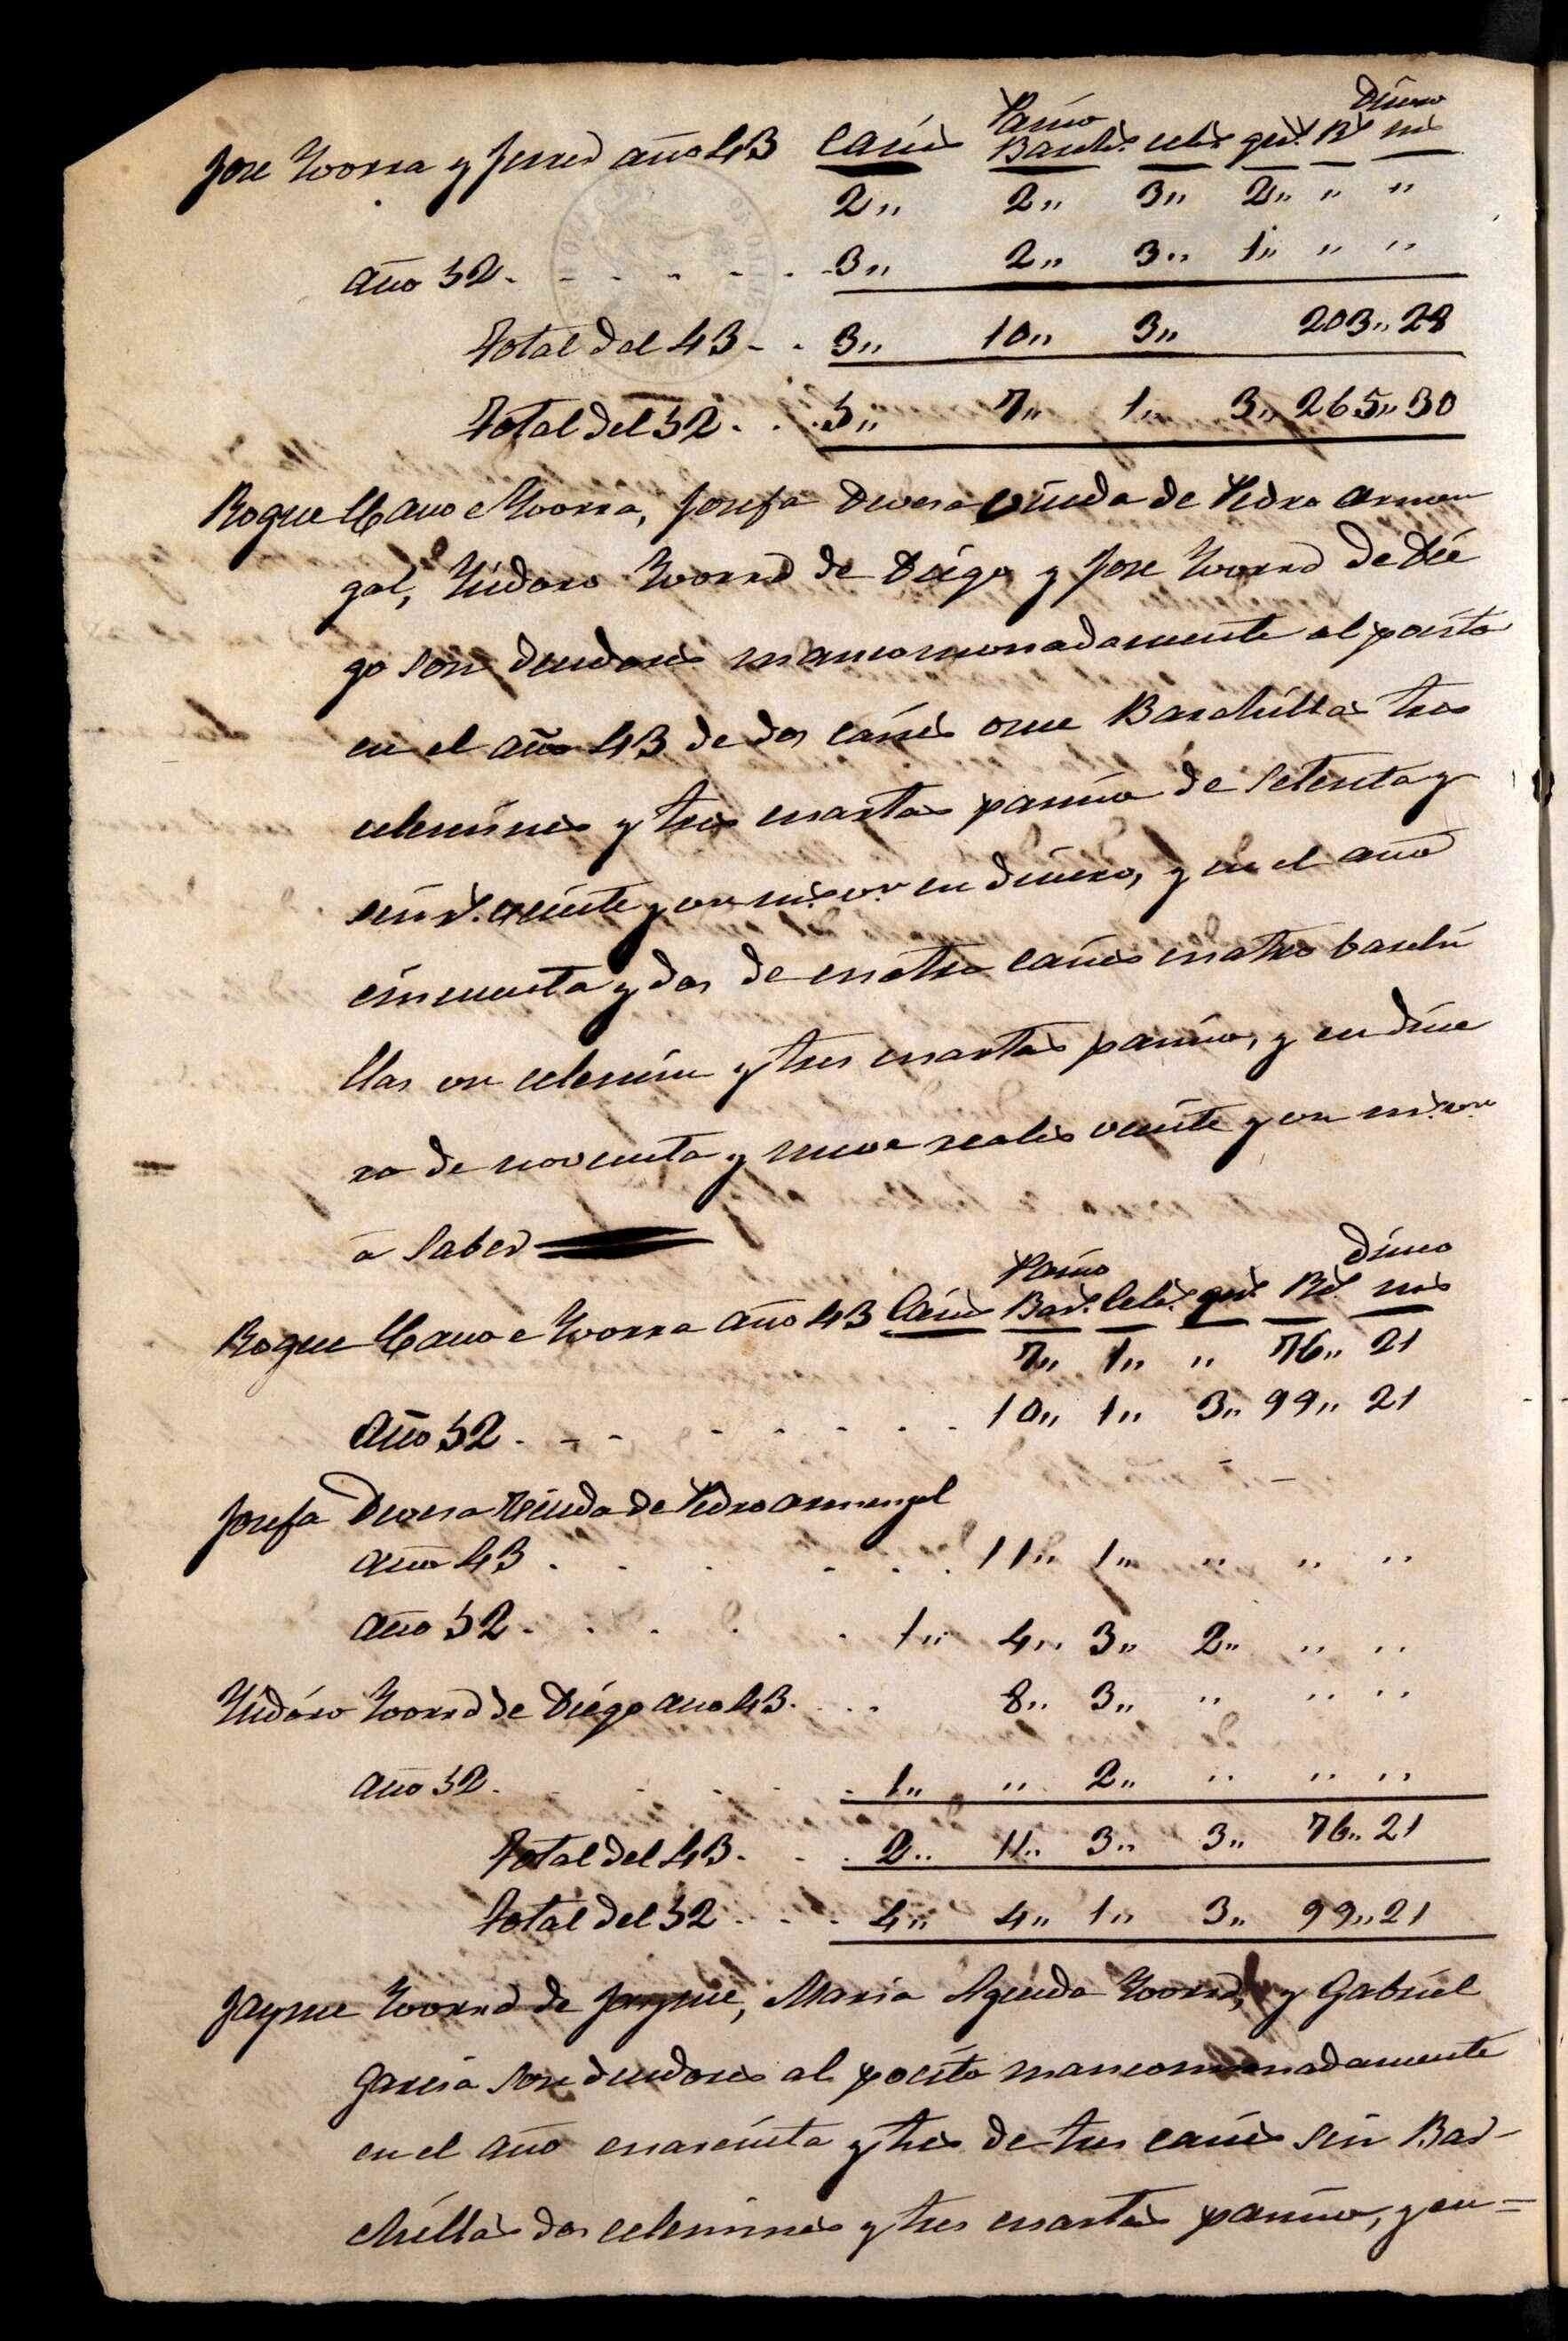 Panizo Dinero
Jose Yvorra y Ferrer año 43 Caíces Barchs. celes. qrs. Rs. ms
2,, 2,, 3,, 2,, ,, ,,
año 52. - - - - - - 3,, 2,, 3,, 1,, ,, ,,
Total del 43 - - 3,, 10,, 3,, 203,, 28
Total del 52 - . . 5,, 7,, 1,, 3,, 265,, 30
Roque Cano e Yvorra, Josefa Devesa viuda de Pedro Armen
gol, Ysidoro Yvorra de Diego y Jose Yvorra de Die
go son deudores mancomunadamente al posito
en el año 43 de dos caíces once Barchillas tres
celemines y tres cuartas panizo de setenta y
seis rs. veinte y un ms. vn en dinero, y en el año
cincuenta y dos de cuatro caíces cuatro barchi
llas un celemin y tres cuartas panizo, y en dine
ro de noventa y nueve reales veinte y un ms. vn
a saber
Panizo Dinero
Roque Cano e Yvorra año 43 Caíces Bars. Celes. qrs. Rs. ms
7,, 1,, ,, 76,, 21
año 52 . - - - - - . . - 10,, 1,, 3,, 99,, 21
Josefa Devesa Viuda de Pedro Armengol
año 43 . . . . . . . 11,, 1,, ,, ,, ,,
año 52 . . . . . 1,, 4,, 3,, 2,, ,, ,,
Ysidóro Yvorra de Diégo año 43. . . . 8,, 3,, ,, ,, ,,
año 52. . . . . 1,, ,, 2,, ,, ,, ,,
Total del 43 - . . . 2,, 11,, 3,, 3,, 76,, 21
Total del 52 - . . . 4,, 4,, 1,, 3,, 99,, 21
Jayme Yvorra de Jayme, Maria Agueda Yvorra, y Gabriel
Garcia son deudores al posito mancomunadamente
en el año cuarenta y tres de tres caíces seis Bar-
chillas dos celemines y tres cuartas panizo, y en =